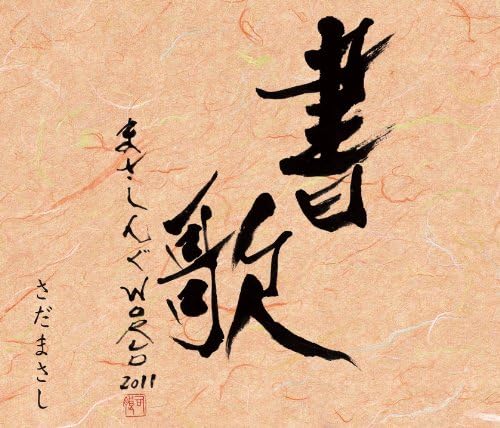 書
歌
まさしんぐWORLD 2011
さだまさし